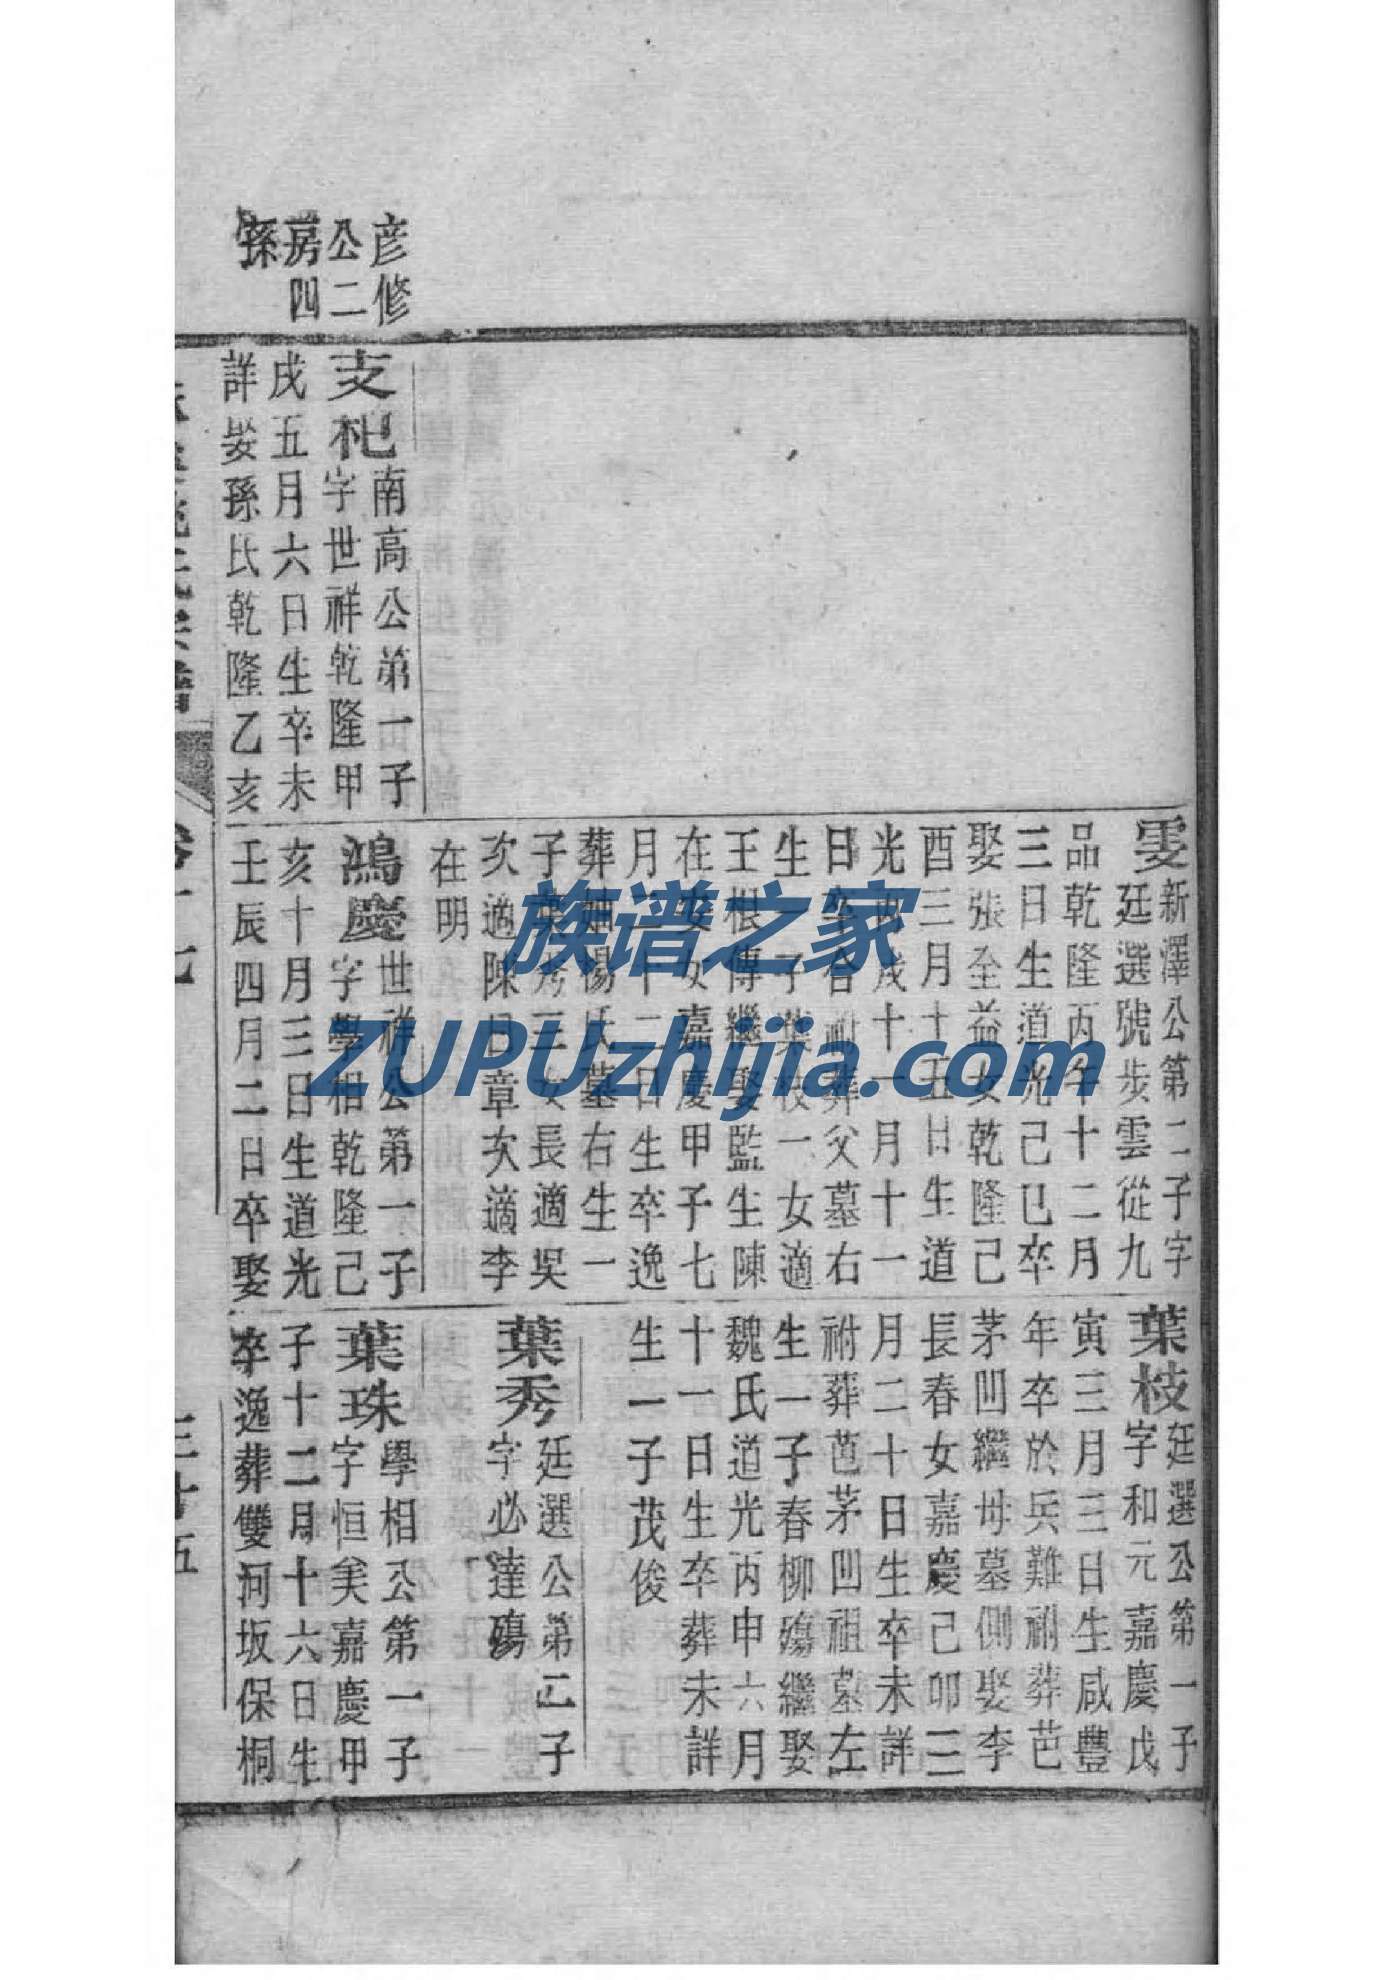 彦修
公二
房四
孫
雯新澤公第二子字
廷選號步雲從九
品乾隆丙午十二月
三日生道光己巳卒
娶張至益女乾隆己
酉三月十五日生道
光丙戌十一月十一
日卒合祔葬父墓右
生一子葉枝一女適
王根傳繼娶監生陳
在 女嘉慶甲子七
月二十二日生卒逸
葬 楊氏墓右生一
子葉秀三女長適吳
次適陳日章次適李
在明
葉枝廷選公第一子
字和元嘉慶戊
寅三月三日生咸豐
年卒於兵難祔葬芭
茅凹繼母墓側娶李
長春女嘉慶己卯三
月二十日生卒未詳
祔葬芭茅凹祖墓左
生一子春柳殤繼娶
魏氏道光丙申六月
十一日生卒葬未詳
生一子茂俊
葉秀廷選公第二子
字必達殤
支祀南高公第一子
字世祥乾隆甲
戌五月六日生卒未
詳娶孫氏乾隆乙亥
鴻慶世祥公第一子
字學相乾隆己
亥十月三日生道光
壬辰四月二日卒娶
葉珠學相公第一子
字恒美嘉慶甲
子十二月十六日生
卒逸葬雙河坂保桐
氏宗譜
卷十七
三十五
族谱之家
ZUPUzhijia.com